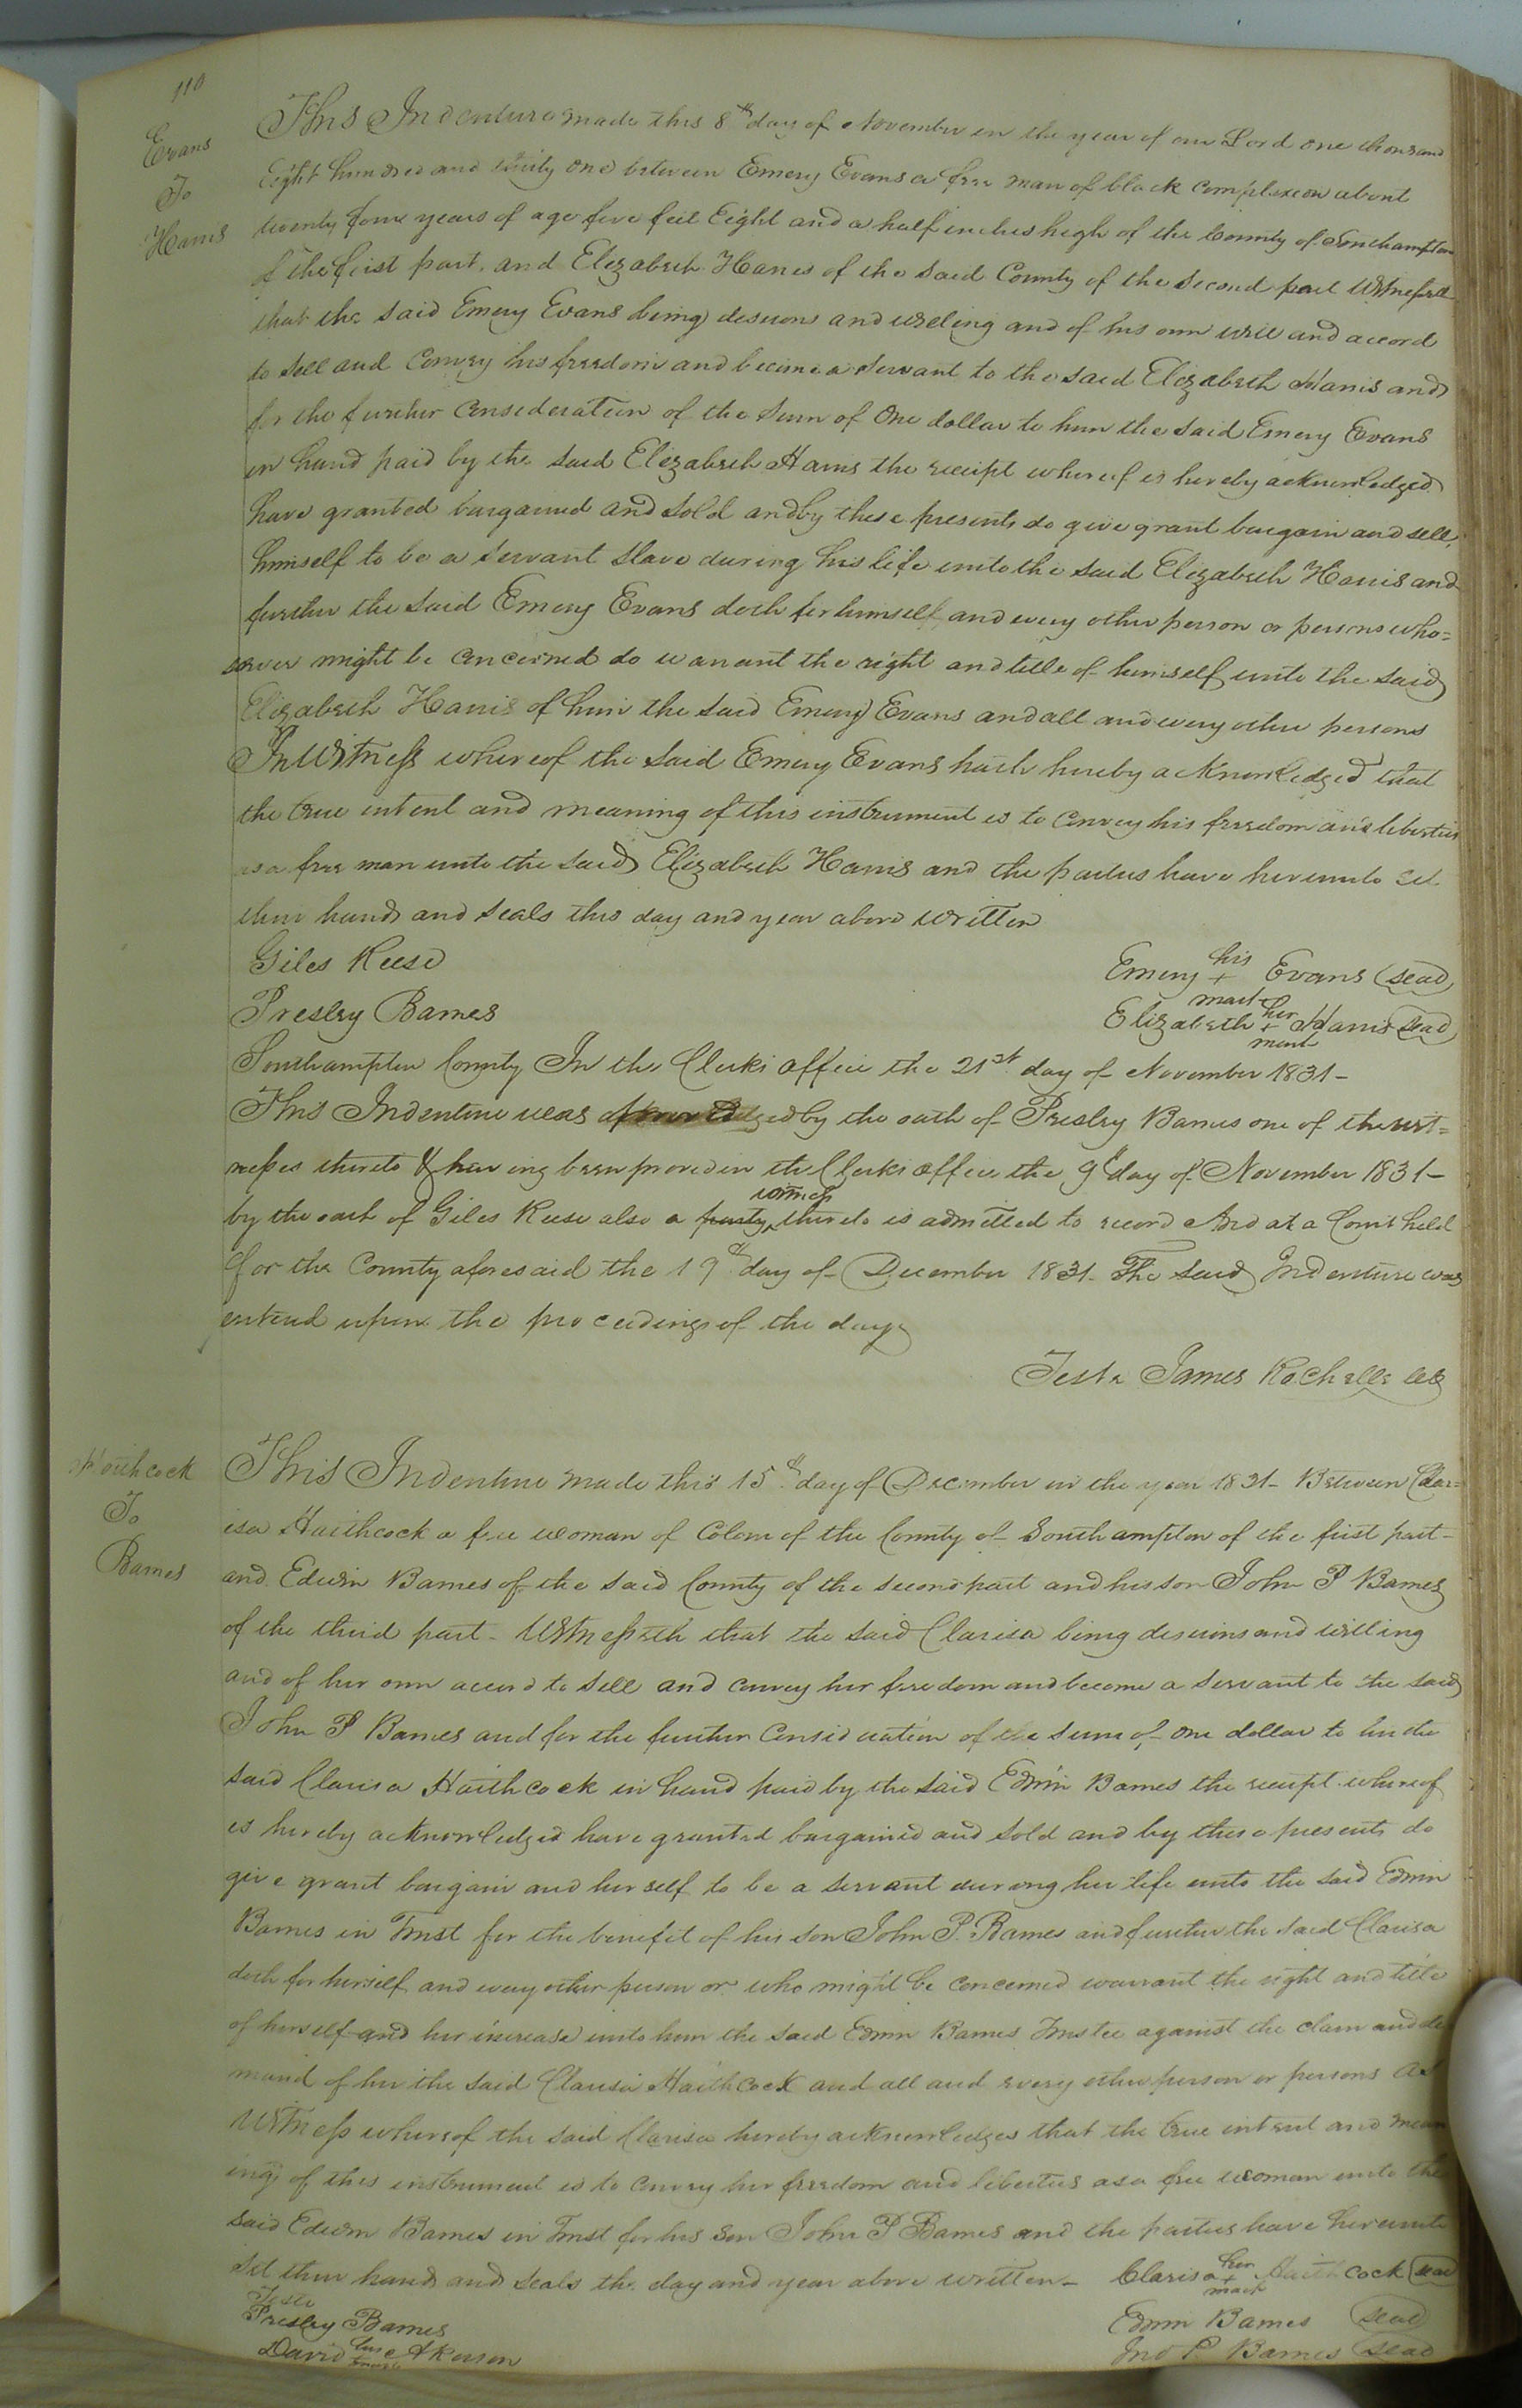 110
Evans
To
Harris
This Indenture made this 8th day of November in the year of our Lord one thousand
Eight hundred and thirty one between Emery Evans a free man of black complexion about
twenty four years of age five feet Eight and a half inches high of the County of Southampton
of the first part. and Elizabeth Harris of the said County of the second part Witnesseth
that the said Emery Evans being desirous and willing and of his own will and accord
to sell and convey his freedom and become a servant to the said Elizabeth Harris and
for the further consideration of the sum of One dollar to him the said Emery Evans
in hand paid by the said Elizabeth Harris the receipt whereof is hereby acknowledged
have granted bargained and sold and by these presents do give grant bargain and sell
himself to be a servant slave during his life unto the said Elizabeth Harris and
further the said Emery Evans doth for himself and every other person or persons who=
soever might be concerned do warrant the right and title of himself unto the said
Elizabeth Harris of him the said Emery Evans and all and every other persons
In Witness whereof the said Emery Evans hath hereby acknowledged that
the true intent and meaning of this instrument is to convey his freedom and liberties
as a free man unto the said Elizabeth Harris and the parties have hereunto set
their hands and seals this day and year above written
Giles Reese
Presley Barnes
Emery his + mark Evans (seal)
Elizabeth her + mark Harris (seal)
Southampton County In the Clerks office the 21st day of November 1831-
This Indenture was acknowledged by the oath of Presley Barnes one of the wit=
nesses thereto & having been proved in the Clerks office the 9th day of November 1831-
by the oath of Giles Reese also a party witness thereto is admitted to record And at a Court held
for the County aforesaid the 19th day of December 1831- The said Indenture was
entered upon the proceedings of the day
Teste James Rochelle clk
Haithcock
To
Barnes
This Indenture made this 15th day of December in the year 1831- Between Clar=
isa Haithcock a free woman of Colour of the County of Southampton of the first part-
and Edwin Barnes of the said County of the second part and his son John P Barnes
of the third part- Witnesseth that the said Clarisa being desirous and willing
and of her own accord to sell and convey her freedom and become a servant to the said
John P Barnes and for the further consideration of the sum of one dollar to her the
said Clarisa Haithcock in hand paid by the said Edwin Barnes the receipt whereof
is hereby acknowledged have granted bargained and sold and by these presents do
give grant bargain and herself to be a servant during her life unto the said Edwin
Barnes in Trust for the benefit of his son John P. Barnes and further the said Clarisa
doth for herself and every other person or who might be concerned warrant the right and title
of herself and her increase unto him the said Edwin Barnes Trustee against the claim and de
mand of her the said Clarisa Haithcock and all and every other person or persons As
Witness whereof the said Clarisa hereby acknowledges that the true intent and mean
ing of this instrument is to convey her freedom and liberties as a free woman unto the
said Edwin Barnes in Trust for his son John P Barnes and the parties have hereunto
set their hands and seals the day and year above written-
Clarisa her + mark Haithcock (seal)
Teste
Presley Barnes
Edwin Barnes (seal)
David his mark Atkerson
Jno P. Barnes (seal)